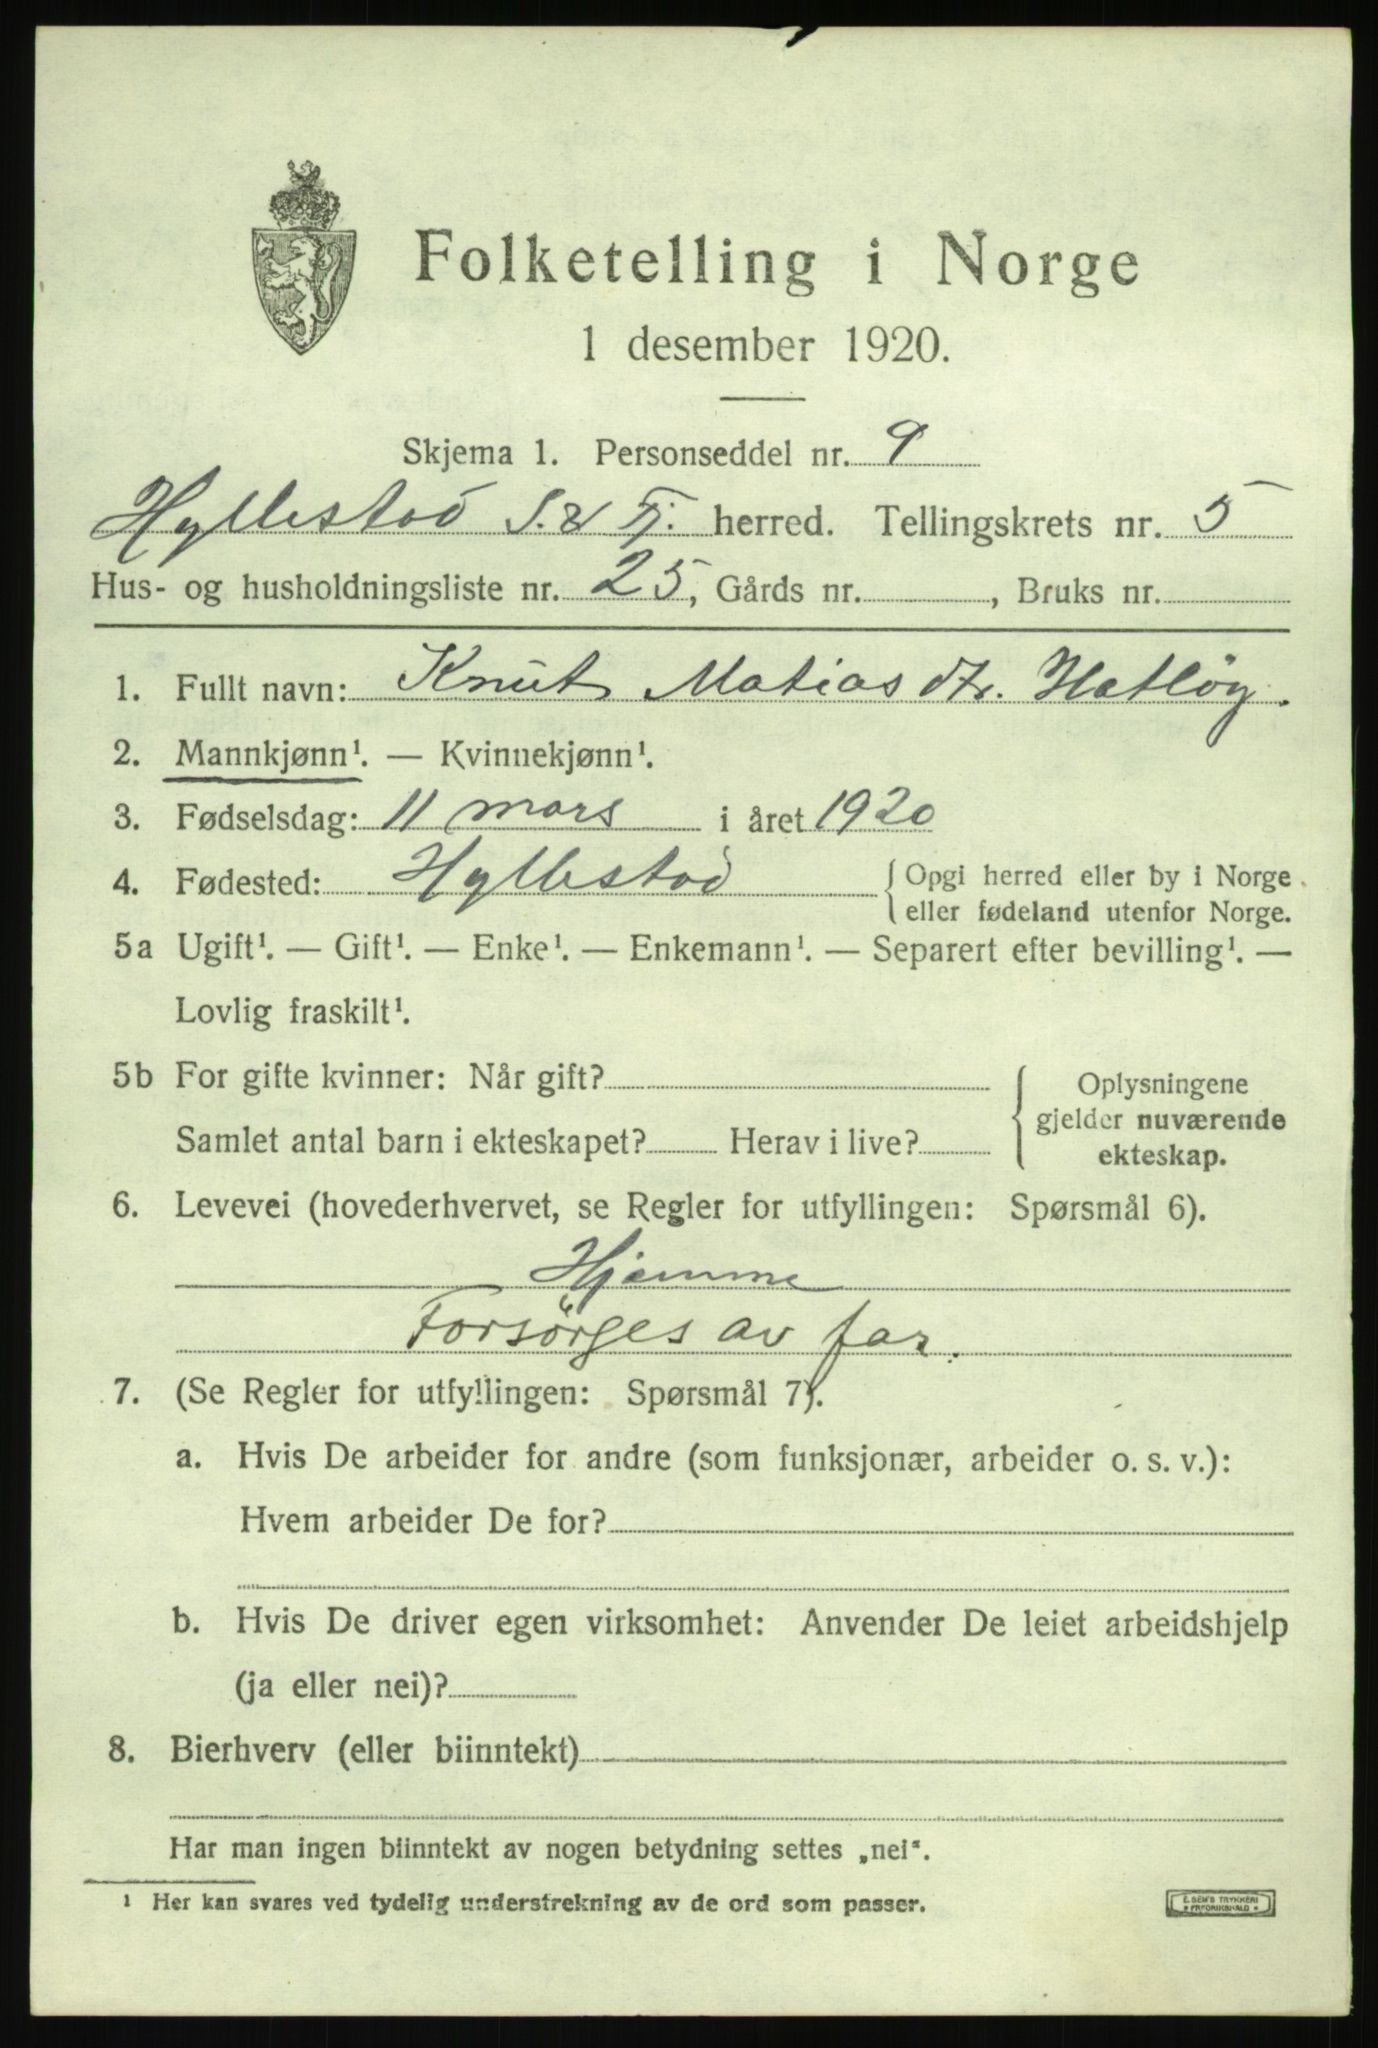 Folketelling i Norge
1 desember 1920.
Skjema 1. Personseddel nr. 9
Hyllestad S. & Fj. herred. Tellingskrets nr. 5
Hus- og husholdningsliste nr. 25, Gårds nr. , Bruks nr.
1. Fullt navn: Knut Matias Hatløy.
2. Mannkjønn¹. — Kvinnekjønn¹.
3. Fødselsdag: 11 mars i året 1920
4. Fødested: Hyllestad { Opgi herred eller by i Norge
eller fødeland utenfor Norge.
5a Ugift¹. — Gift¹. — Enke¹. — Enkemann¹. — Separert efter bevilling¹. —
Lovlig fraskilt¹.
5b For gifte kvinner: Når gift? Oplysningene
gjelder nuværende
Samlet antal barn i ekteskapet? Herav i live? ekteskap.
6. Levevei (hovederhvervet, se Regler for utfyllingen: Spørsmål 6).
Hjemme
Forsørges av far.
7. (Se Regler for utfyllingen: Spørsmål 7).
a. Hvis De arbeider for andre (som funksjonær, arbeider o. s. v.):
Hvem arbeider De for?
b. Hvis De driver egen virksomhet: Anvender De leiet arbeidshjelp
(ja eller nei)?
8. Bierhverv (eller biinntekt)
Har man ingen biinntekt av nogen betydning settes „nei“.
¹ Her kan svares ved tydelig understrekning av de ord som passer.
E. SEM'S TRYKKERI
FREDRIKSHALD